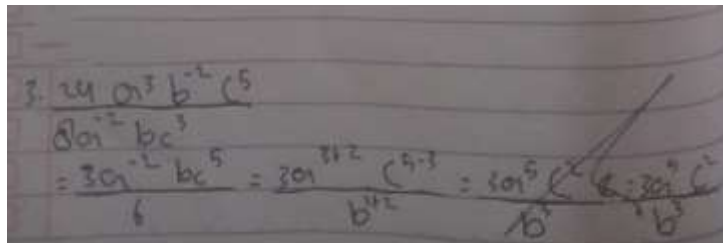 3. 24 a³ b⁻² c⁵
8a⁻² bc³
= 3a⁻² bc⁵ / 6 = 3a³⁺² c⁵⁻³ / b¹⁺² = 3a⁵ c² / b³ = 3a⁵ c² / b³